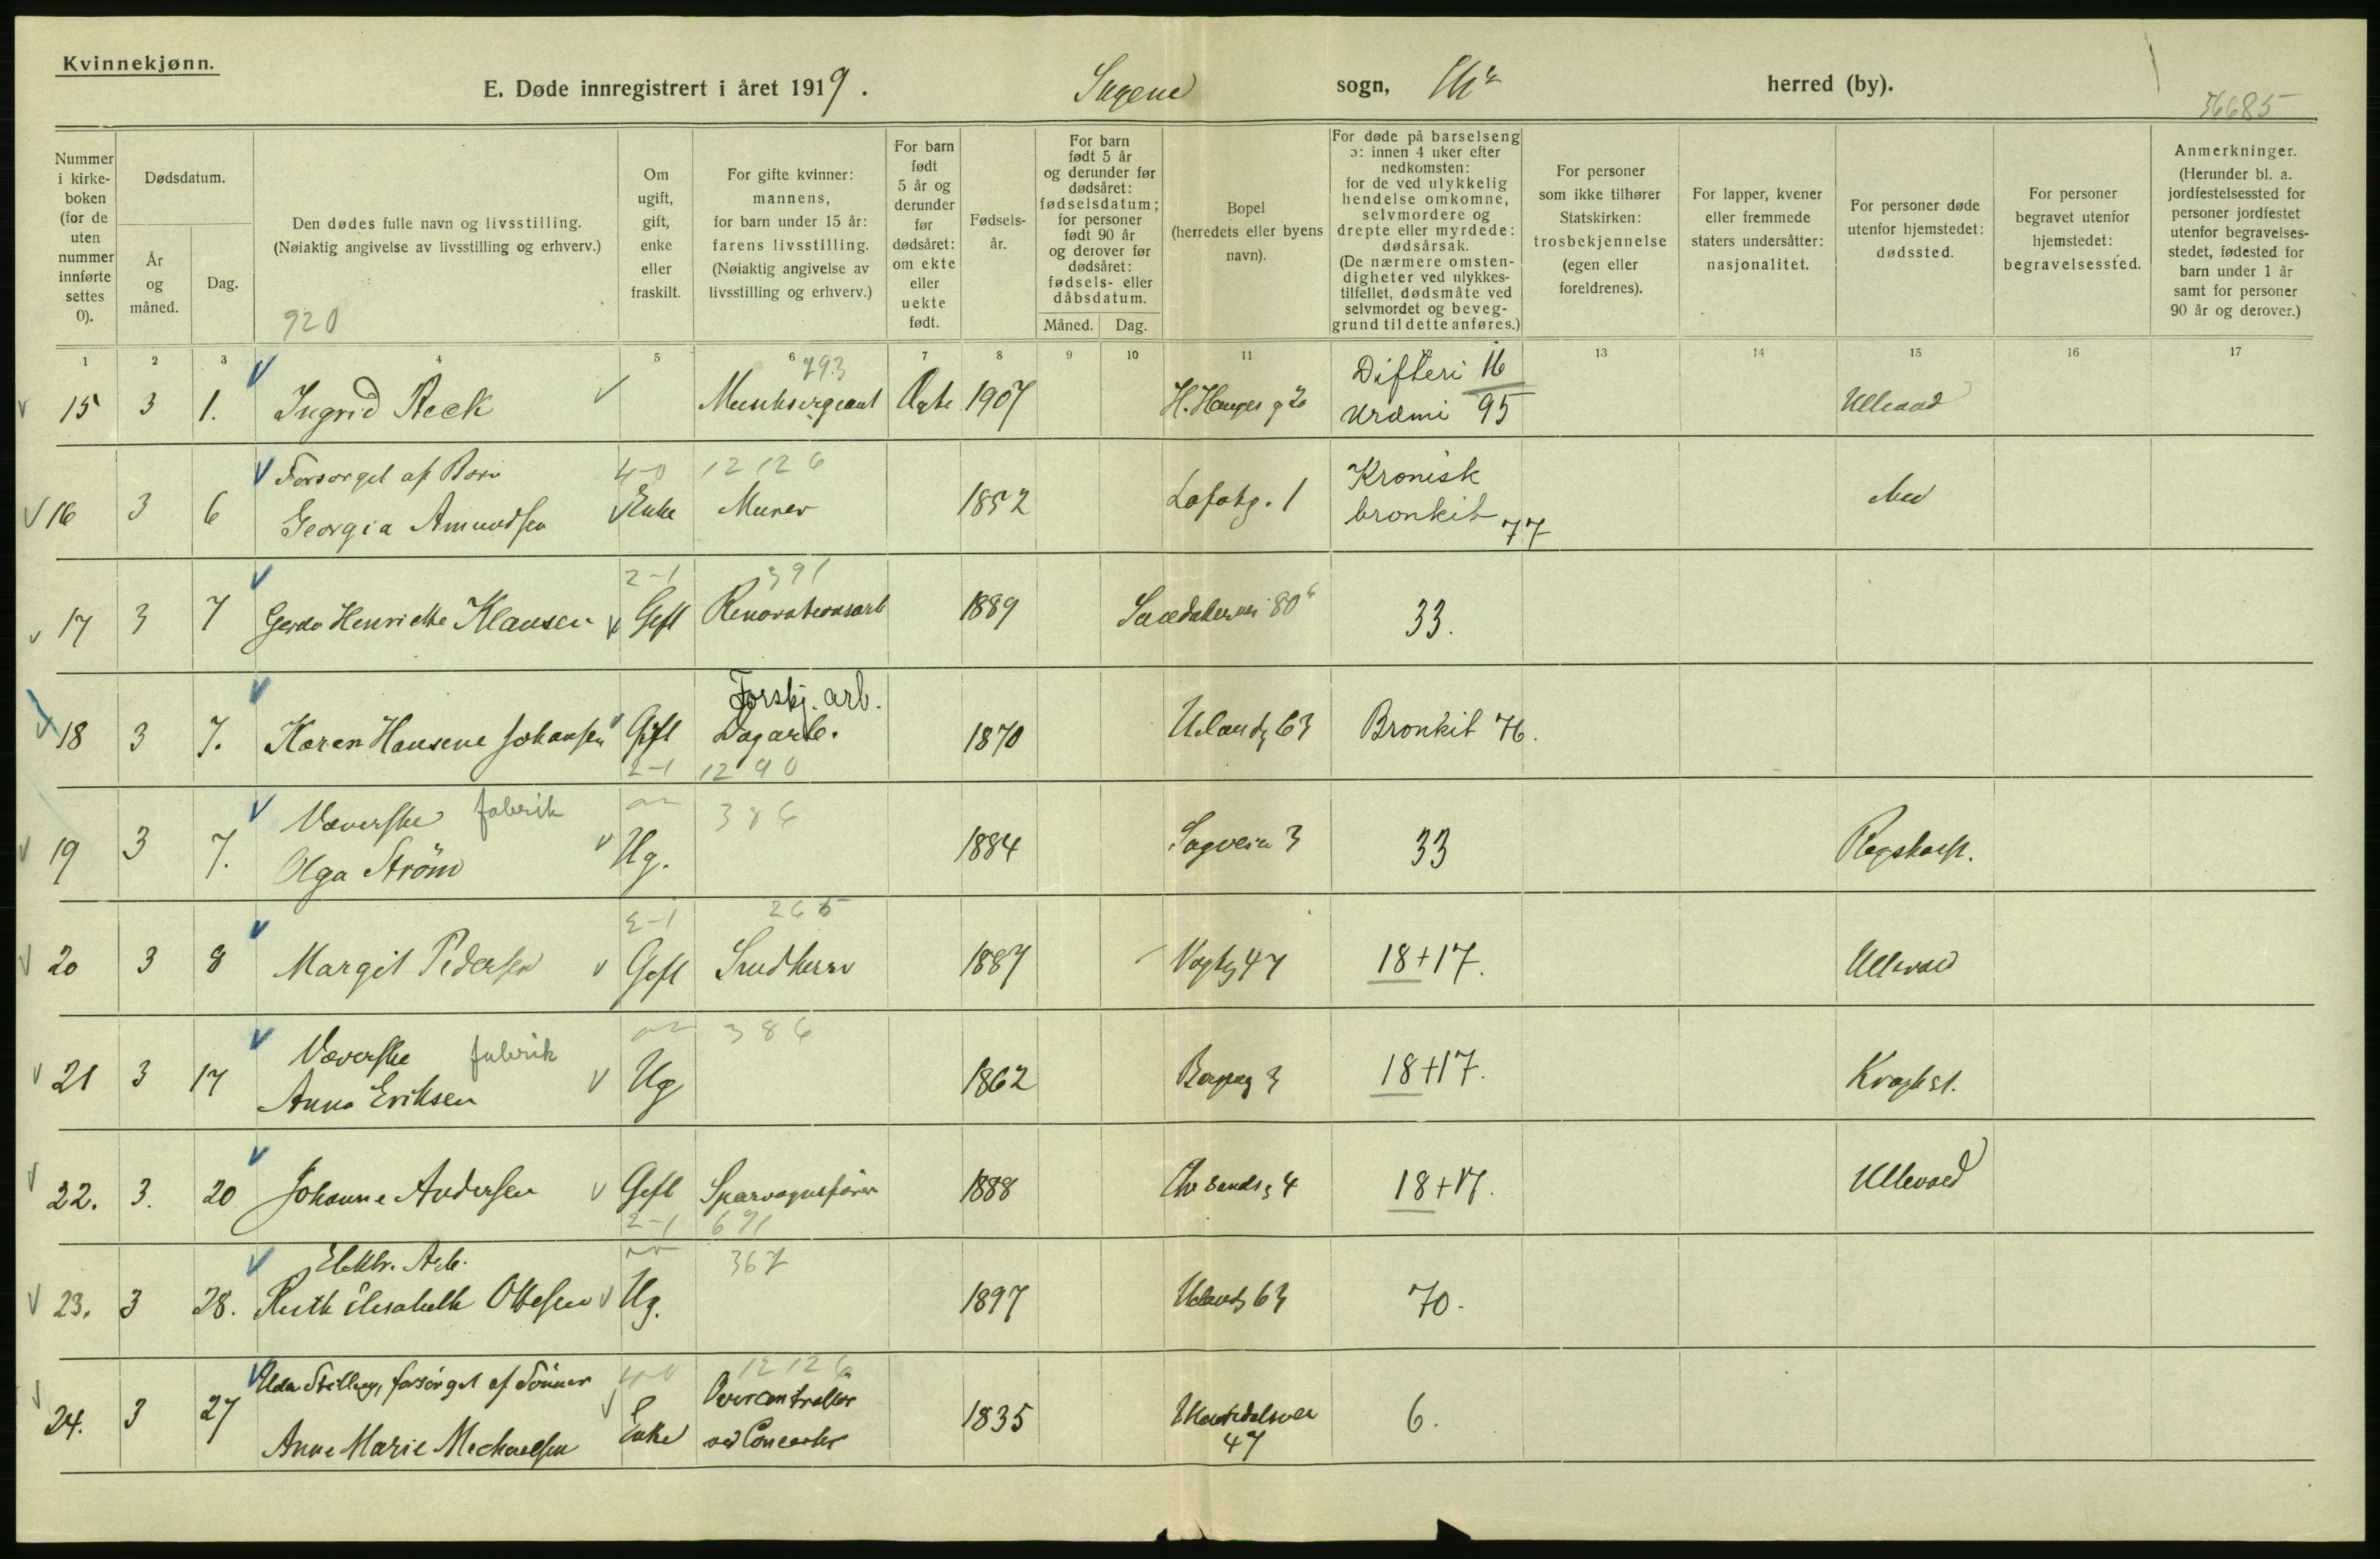 Kvinnekjønn.
E. Døde innregistrert i året 1919. Sagene sogn, Chr herred (by).
56685
Nummer i kirkeboken (for de uten nummer innførte settes 0).
Dødsdatum.
År og måned.
Dag.
Den dødes fulle navn og livsstilling. (Nøiaktig angivelse av livsstilling og erhverv.)
920
Om ugift, gift, enke eller fraskilt.
For gifte kvinner: mannens, for barn under 15 år: farens livsstilling. (Nøiaktig angivelse av livsstilling og erhverv.)
For barn født 5 år og derunder før dødsåret: om ekte eller uekte født.
Fødselsår.
For barn født 5 år og derunder før dødsåret: fødselsdatum; for personer født 90 år og derover før dødsåret: fødsels- eller dåbsdatum.
Måned. Dag.
Bopel (herredets eller byens navn).
For døde på barselseng ɔ: innen 4 uker efter nedkomsten: for de ved ulykkelig hendelse omkomne, selvmordere og drepte eller myrdede: dødsårsak. (De nærmere omstendigheter ved ulykkestilfellet, dødsmåte ved selvmordet og beveggrund til dette anføres.)
For personer som ikke tilhører Statskirken: trosbekjennelse (egen eller foreldrenes).
For lapper, kvener eller fremmede staters undersåtter: nasjonalitet.
For personer døde utenfor hjemstedet: dødssted.
For personer begravet utenfor hjemstedet: begravelsessted.
Anmerkninger. (Herunder bl. a. jordfestelsessted for personer jordfestet utenfor begravelsesstedet, fødested for barn under 1 år samt for personer 90 år og derover.)
1 2 3 4 5 6 7 8 9 10 11 13 14 15 16 17
793 Difteri 16
15 3 1. Ingrid Beck Musiksergeant Ægte 1907 H. Hauges g Uræmi 95 Ullevaal
Forsørget af Børn 4-0 12 12 6 Kronisk
16 3 6 Georgia Amundsen Enke Murer 1852 Lofotg. 1 bronkit 77
2-1 391
17 3 7 Gerda Henriette Klausen Gift Renovationsarb 1889 80 33.
Forskj. arb.
18 3 7. Karen Hansene Johansen Gift Dagarb. 1870 Uelandsg 63 Bronkit 76.
2-1 12 9 0
Væverske fabrik 386
19 3 7. Olga Ström Ug. 1884 Sagveien 3 33 Rigshosp.
2-1 265
20 3 8 Margit Pedersen Gift 1887 Vogtsg 47 18+17. Ullevaal
Væverske fabrik 386
21 3 17 Anna Eriksen Ug 1862 18+17.
22. 3. 20 Johanne Andersen Gift Sporvognsfører 1888 4 18+17. Ullevaal
2-1 691
Elektr. Arb. 367
23. 3 28. Ruth Elisabeth Ottesen Ug. 1897 Uelandsg 63 70.
Uden Stilling, forsørget af Sönner 4-0 12 12 6
24. 3 27 Anne Marie Mechaelsen Enke Overcontrollør 1835 6.
47